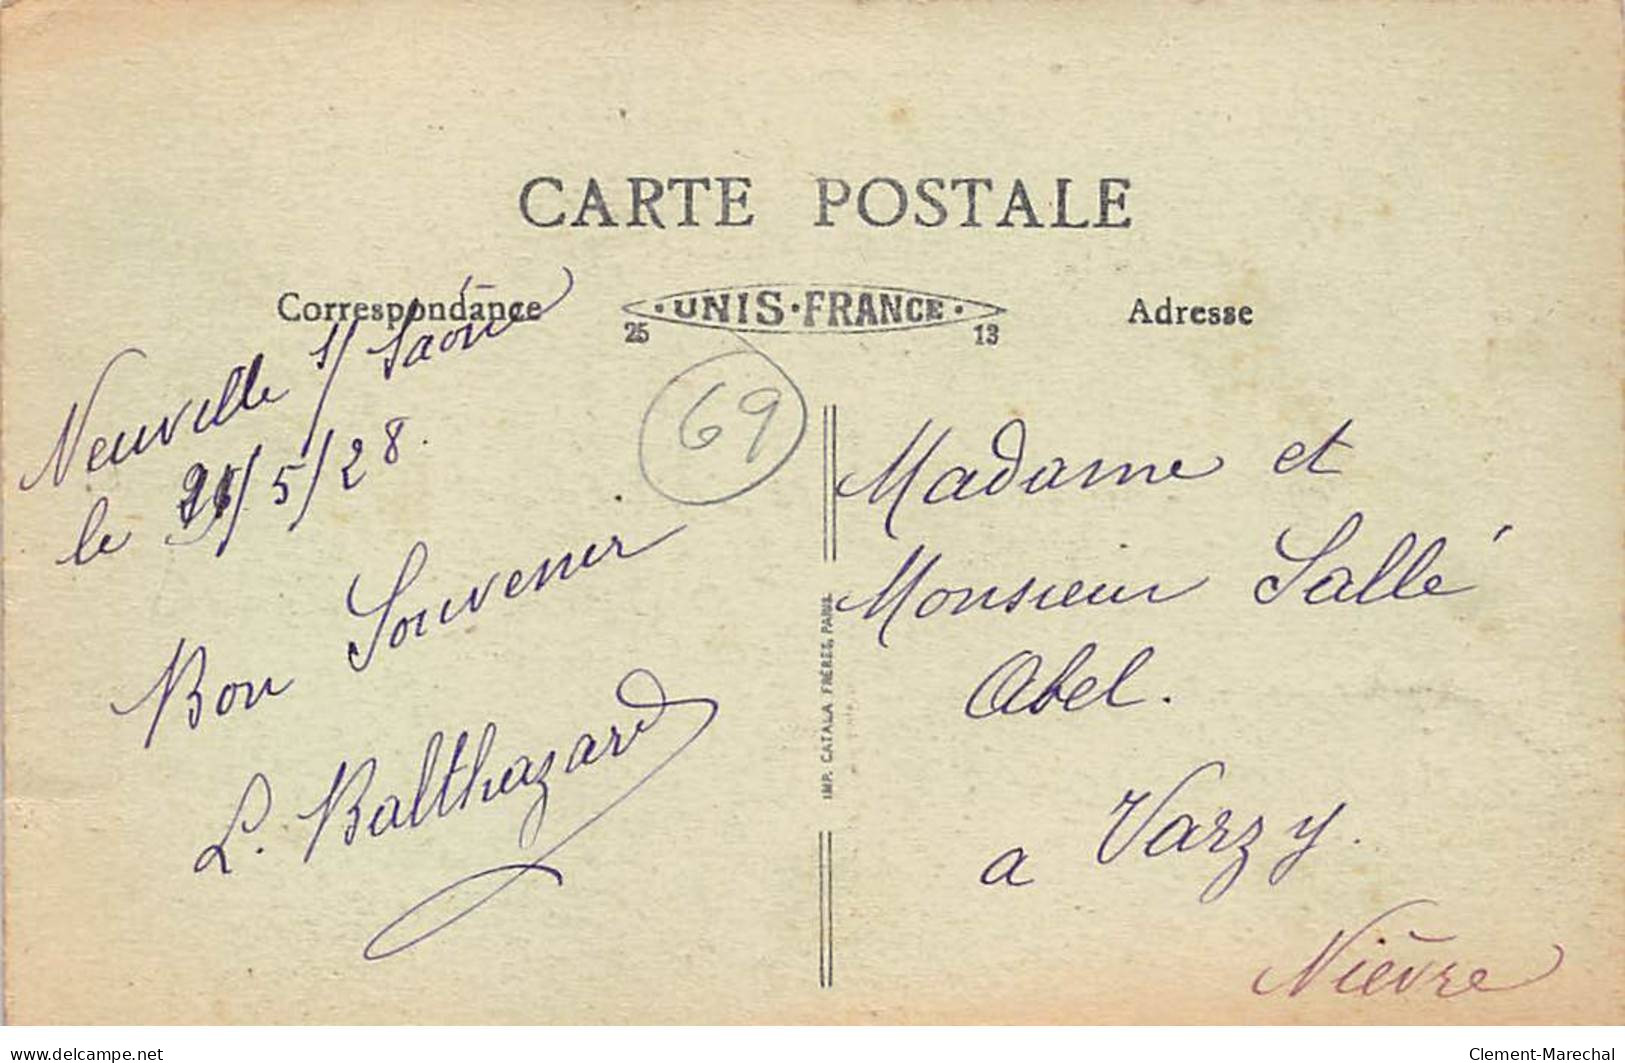 CARTE POSTALE
Correspondance
·UNIS·FRANCE·
25 13
Adresse
Neuville s/ Saône
le 21/5/28.
69
Bon Souvenir
L. Balthazard
IMP. CATALA FRÈRES, PARIS.
Madame et
Monsieur Sallé
Abel.
a Varzy.
Nièvre
www.delcampe.net
Clement-Marechal